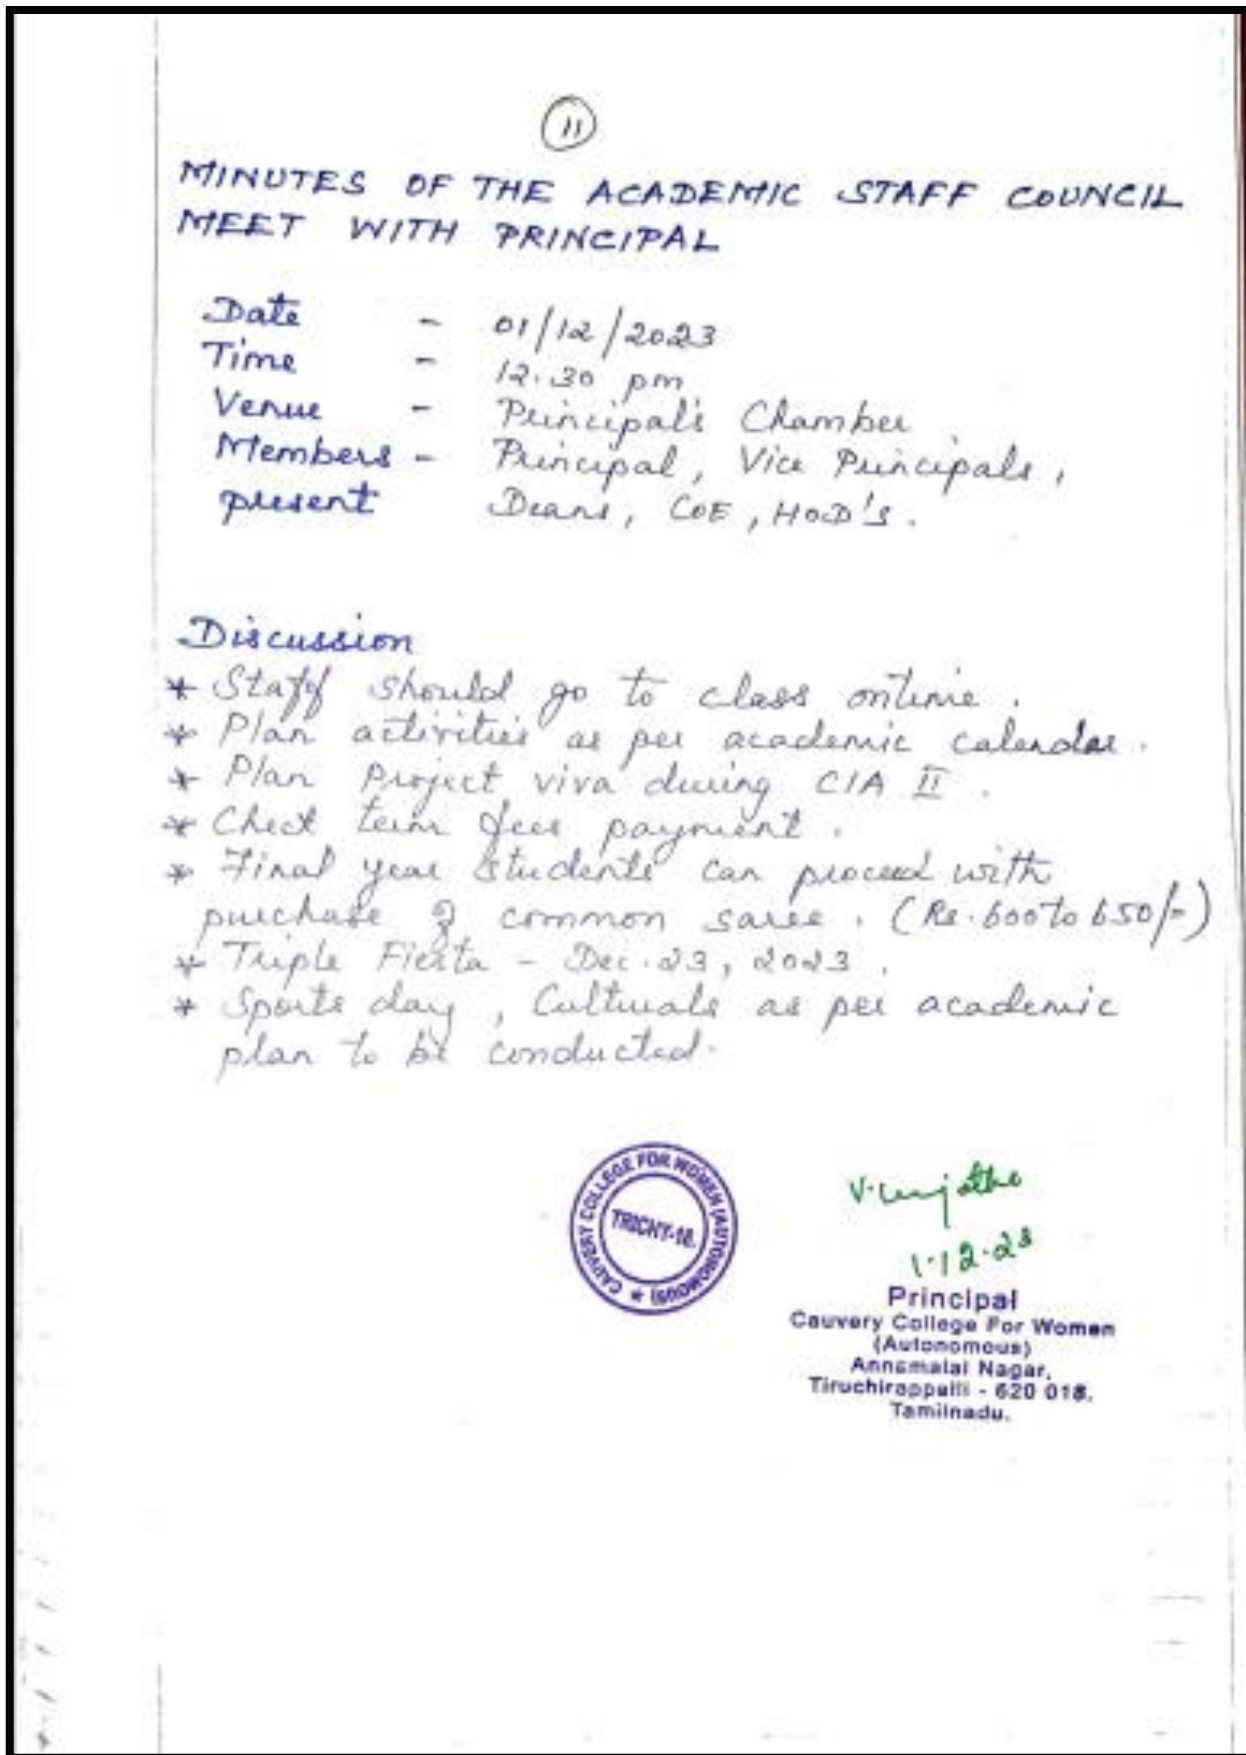 11
MINUTES OF THE ACADEMIC STAFF COUNCIL
MEET WITH PRINCIPAL
Date - 01/12/2023
Time - 12.30 pm
Venue - Principal's Chamber
Members - Principal, Vice Principals,
present Deans, CoE, HoD's.
Discussion
* Staff should go to class ontime.
* Plan activities as per academic calendar.
* Plan Project viva during CIA II.
* Check term fees payment.
* Final year students can proceed with
purchase of common saree. (Rs. 600 to 650/-)
* Triple Fiesta - Dec. 23, 2023.
* Sports day, Culturals as per academic
plan to be conducted.
CAUVERY COLLEGE FOR WOMEN (AUTONOMOUS) ★
TRICHY-18.
1.12.23
Principal
Cauvery College For Women
(Autonomous)
Annamalai Nagar,
Tiruchirappalli - 620 018.
Tamilnadu.